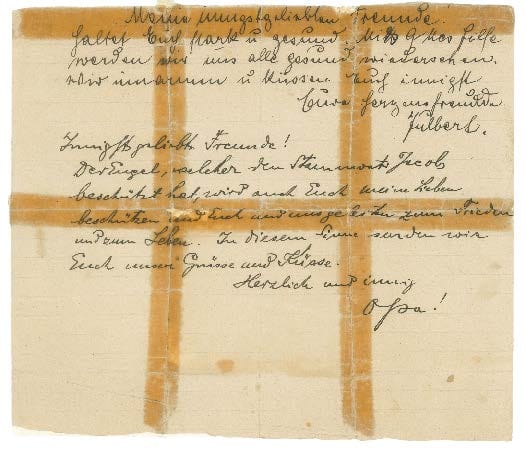 Meine innigstgeliebten Freunde!
Haltet Euch stark u gesund. Mit G'ttes Hilfe
werden wir uns alle gesund wiedersehen.
Wir umarmen u küssen Euch innigst
Eure Herzensfreunde
Innigst geliebte Freunde!
Der Engel, welcher den Stammvater Jacob
beschützt hat, wird auch Euch meine Lieben
beschützen und Euch und uns geleiten zum Frieden
und zum Leben. In diesem Sinne senden wir
Euch unsere Grüsse und Küsse.
Herzlich und innig
Opa!